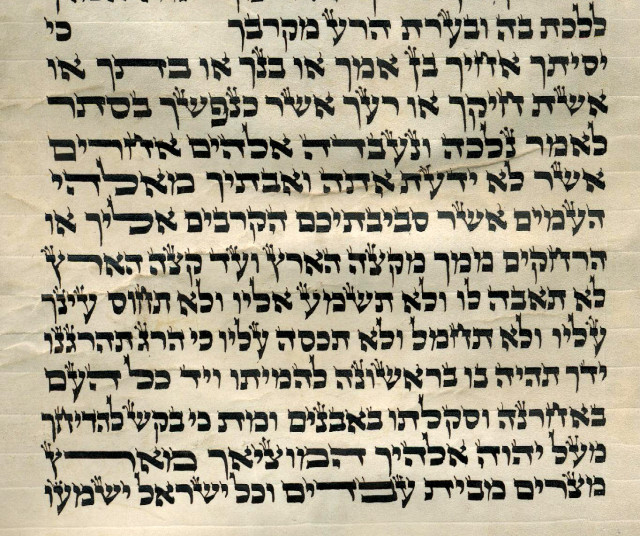 ללכת בה ובערת הרע מקרבך כי
יסיתך אחיך בן אמך או בנך או בתך או
אשת חיקך או רעך אשר כנפשך בסתר
לאמר נלכה ונעבדה אלהים אחרים
אשר לא ידעת אתה ואבתיך מאלהי
העמים אשר סביבתיכם הקרבים אליך או
הרחקים ממך מקצה הארץ ועד קצה הארץ
לא תאבה לו ולא תשמע אליו ולא תחוס עינך
עליו ולא תחמל ולא תכסה עליו כי הרג תהרגנו
ידך תהיה בו בראשונה להמיתו ויד כל העם
באחרנה וסקלתו באבנים ומת כי בקש להדיחך
מעל יהוה אלהיך המוציאך מארץ
מצרים מבית עבדים וכל ישראל ישמעו